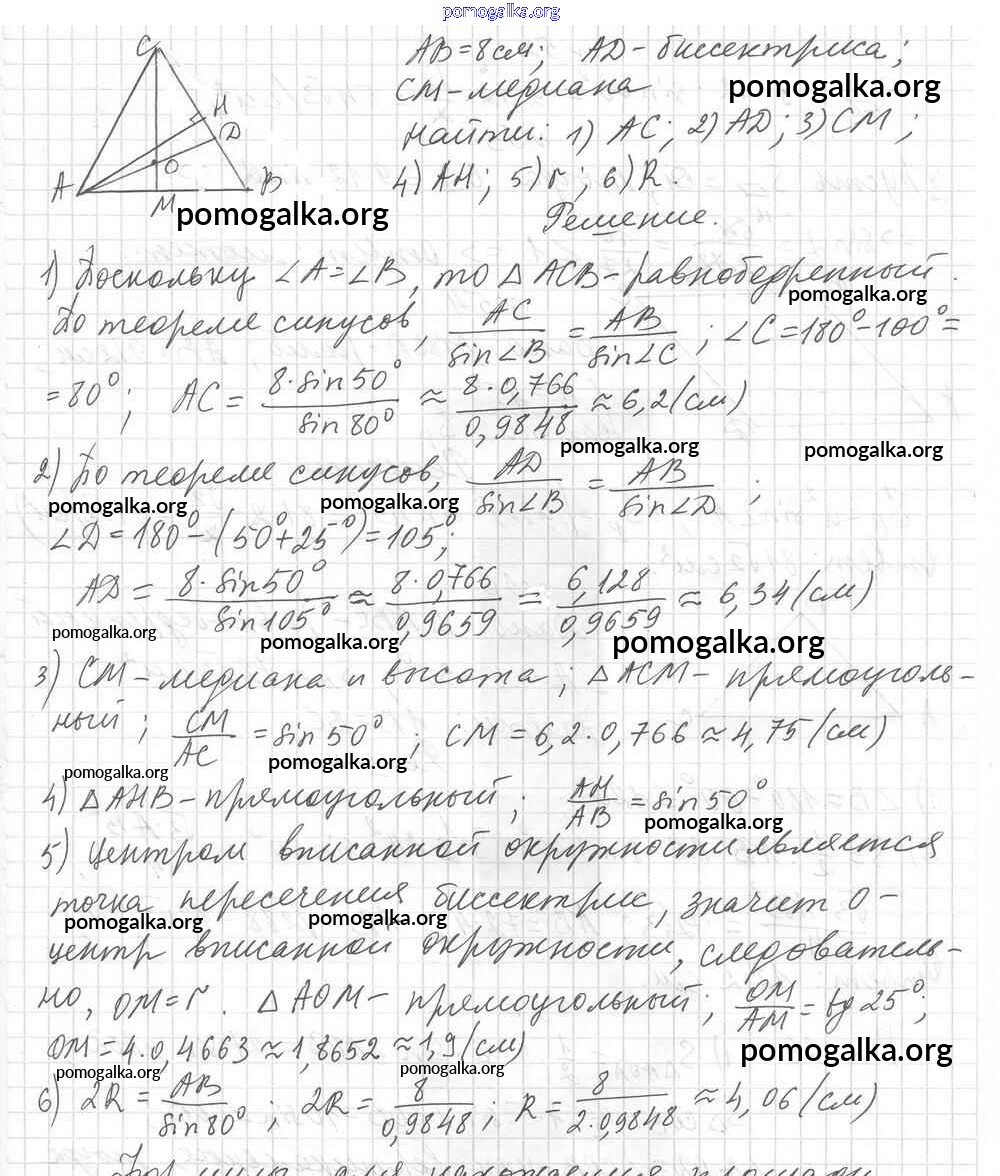 pomogalka.org
C
H
D
O
A
B
M
AB=8см; AD-биссектриса;
CM-медиана
pomogalka.org
найти: 1) AC; 2) AD; 3) CM;
4) AH; 5) r; 6) R.
pomogalka.org
Решение.
1) Поскольку ∠A=∠B, то △ACB-равнобедренный.
pomogalka.org
По теореме синусов, AC/sin∠B = AB/sin∠C; ∠C=180°-100°=
=80°; AC = 8·sin50°/sin80° ≈ 8·0,766/0,9848 ≈ 6,2(см)
pomogalka.org
pomogalka.org
2) По теореме синусов, AD/sin∠B = AB/sin∠D;
pomogalka.org
pomogalka.org
∠D=180°-(50°+25°)=105°;
AD = 8·sin50°/sin105° ≈ 8·0,766/0,9659 = 6,128/0,9659 ≈ 6,34(см)
pomogalka.org
pomogalka.org
pomogalka.org
3) CM-медиана и высота; △ACM-прямоуголь-
ный; CM/AC = sin50°; CM=6,2·0,766≈4,75(см)
pomogalka.org
pomogalka.org
4) △AHB-прямоугольный; AH/AB = sin50°
pomogalka.org
5) Центром вписанной окружности является
точка пересечения биссектрис, значит O-
pomogalka.org
pomogalka.org
центр вписанной окружности, следователь-
но, OM=r. △AOM-прямоугольный; OM/AM = tg25°;
OM=4·0,4663≈1,8652≈1,9(см)
pomogalka.org
pomogalka.org
pomogalka.org
6) 2R = AB/sin80°; 2R = 8/0,9848; R = 8/2·0,9848 ≈ 4,06(см)